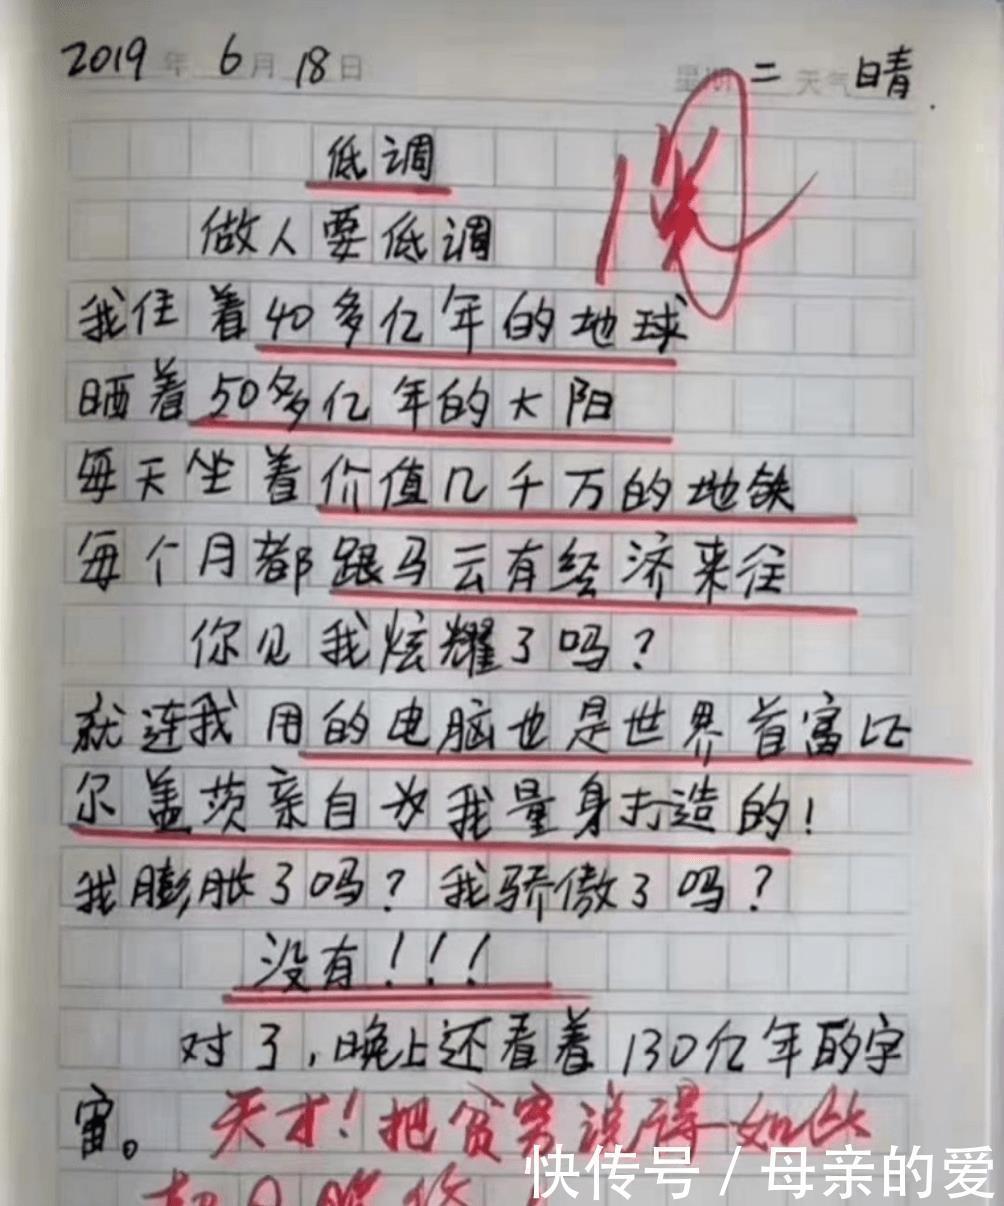 2019年 6月 18日 星期二 天气 晴.
阅
低调
做人要低调
我住着40多亿年的地球
晒着50多亿年的大阳
每天坐着价值几千万的地铁
每个月都跟马云有经济来往
你见我炫耀了吗?
就连我用的电脑也是世界首富比
尔盖茨亲自为我量身打造的!
我膨胀了吗?我骄傲了吗?
没有!!!
对了,晚上还看着130亿年的宇
宙。天才!把贫穷说得如此
快传号/母亲的爱